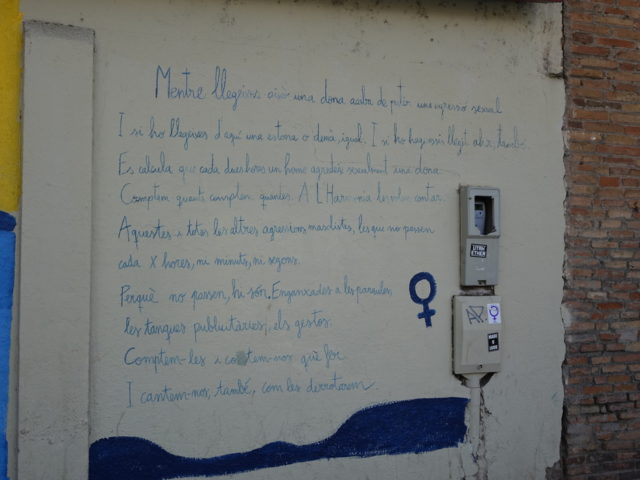 Mentre llegeixes això una dona acaba de patir una agressió sexual
I si ho llegeixes d'aquí una estona o demà, igual. I si ho haguessis llegit ahir, també.
Es calcula que cada dues hores un home agredeix sexualment una dona.
Comptem quants compten quantes. A L'Harmonia les volem contar.
Aquestes i totes les altres agressions masclistes, les que no passen
cada X hores, ni minuts, ni segons.
Perquè no passen, hi són. Enganxades a les paraules,
les tanques publicitàries, els gestos.
Comptem-les i contem-nos què fer
I cantem-nos, també, com les derrotarem